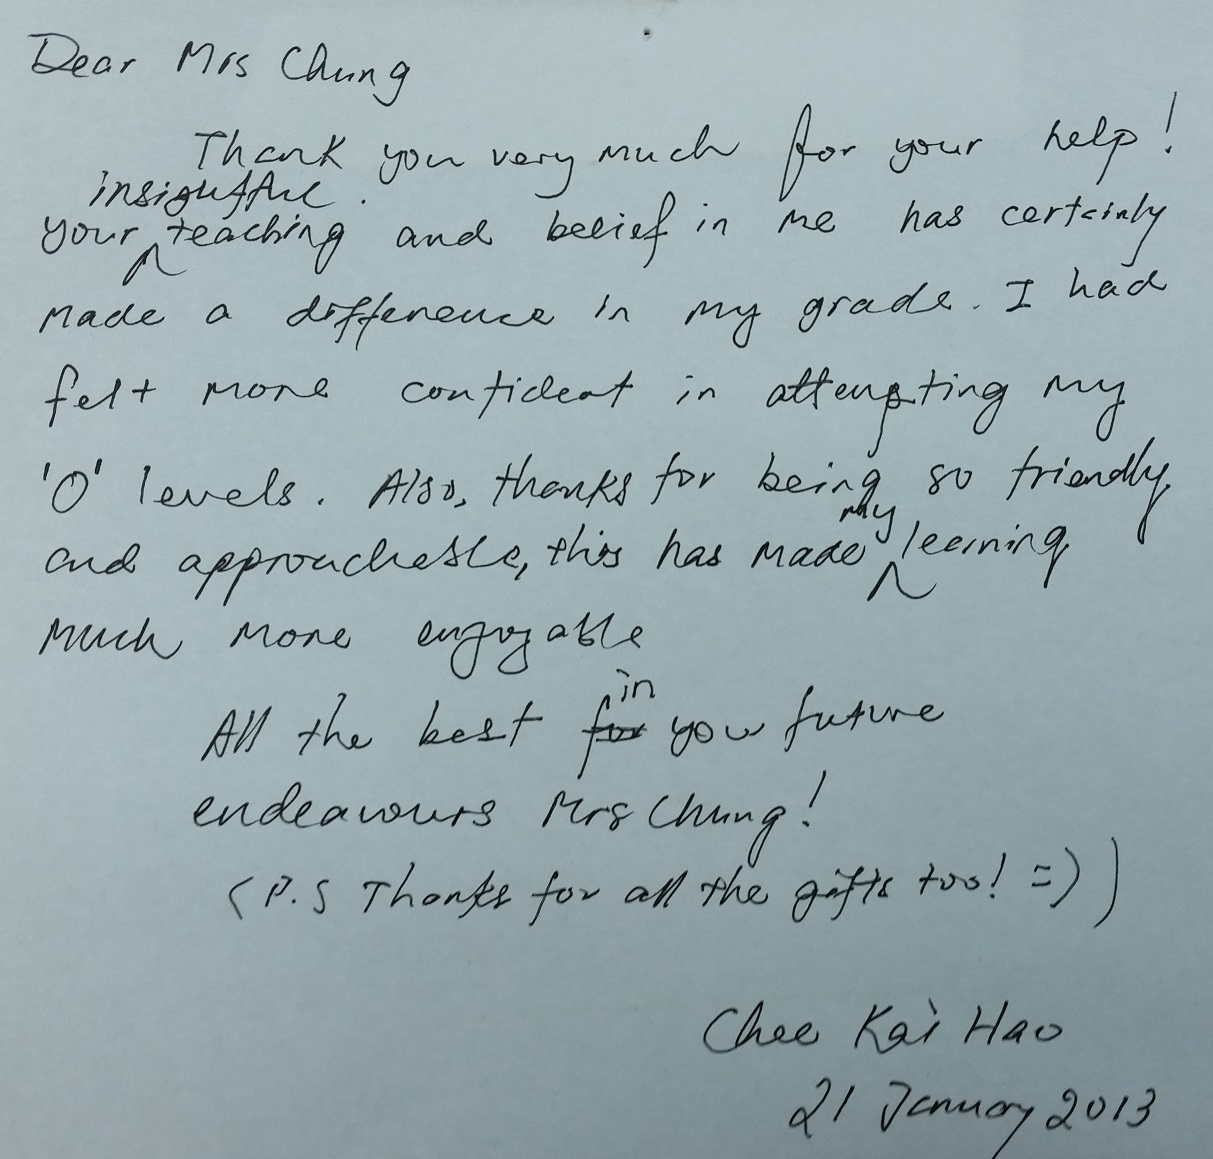 Dear Mrs Chung
Thank you very much for your help!
insightful
your teaching and belief in me has certainly
made a difference in my grade. I had
felt more confident in attempting my
'O' levels. Also, thanks for being so friendly
my
and approachable, this has made learning
much more enjoyable
in
All the best for you future
endeavours Mrs Chung!
(P.S Thanks for all the gifts too! =))
Chee Kai Hao
21 January 2013